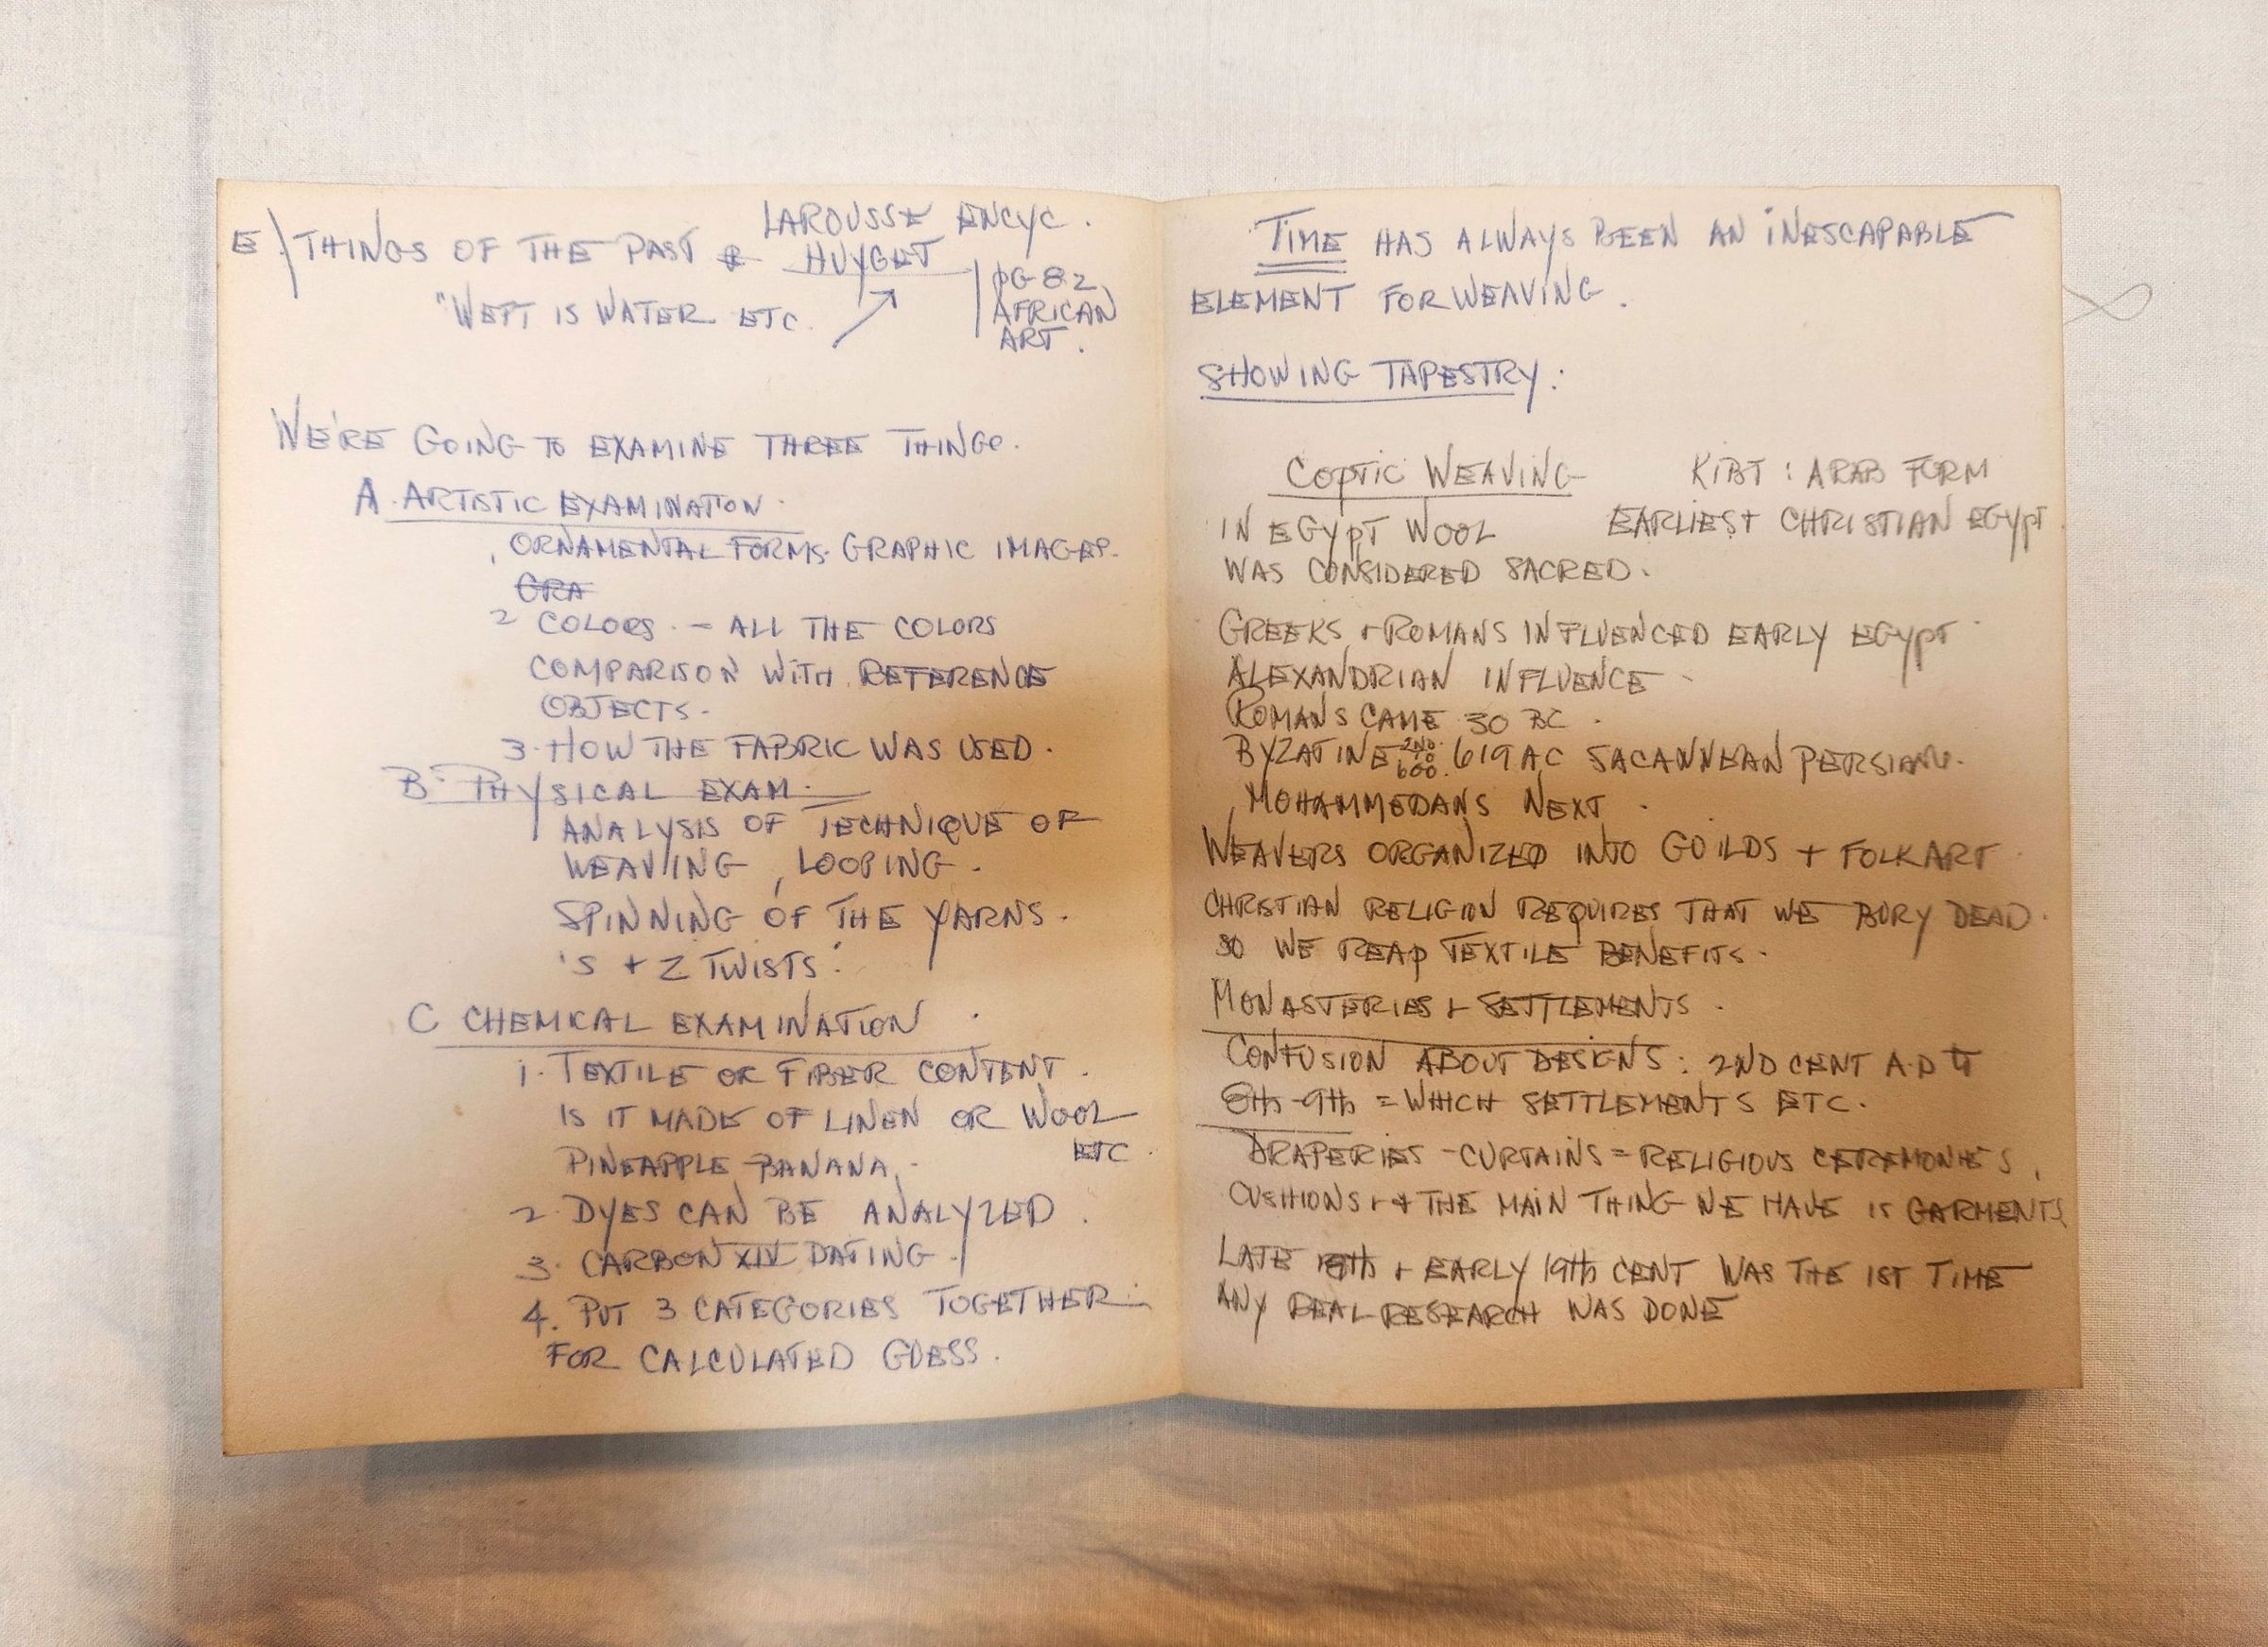 E) THINGS OF THE PAST LAROUSSE ENCYC.
HUYGET
"WEFT IS WATER ETC.
PG 82
AFRICAN
ART.
WE'RE GOING TO EXAMINE THREE THINGS.
A. ARTISTIC EXAMINATION.
ORNAMENTAL FORMS. GRAPHIC IMAGES.
GRA
2 COLORS. - ALL THE COLORS
COMPARISON WITH REFERENCE
OBJECTS.
3. HOW THE FABRIC WAS USED.
B. PHYSICAL EXAM.
ANALYSIS OF TECHNIQUE OF
WEAVING, LOOPING.
SPINNING OF THE YARNS.
'S + Z TWISTS'.
C CHEMICAL EXAMINATION.
1. TEXTILE OR FIBER CONTENT.
IS IT MADE OF LINEN OR WOOL
PINEAPPLE BANANA, - ETC.
2. DYES CAN BE ANALYZED.
3. CARBON XIV DATING.
4. PUT 3 CATEGORIES TOGETHER
FOR CALCULATED GUESS.
TIME HAS ALWAYS BEEN AN INESCAPABLE
ELEMENT FOR WEAVING.
SHOWING TAPESTRY:
COPTIC WEAVING KIBT : ARAB FORM
IN EGYPT WOOL EARLIEST CHRISTIAN EGYPT.
WAS CONSIDERED SACRED.
GREEKS + ROMANS INFLUENCED EARLY EGYPT
ALEXANDRIAN INFLUENCE
ROMANS CAME 30 BC.
BYZATINE 2ND TO 600. 619 AC SACANNEAN PERSIANS.
MOHAMMEDANS NEXT.
WEAVERS ORGANIZED INTO GUILDS + FOLKART
CHRISTIAN RELIGION REQUIRES THAT WE BURY DEAD.
SO WE REAP TEXTILE BENEFITS.
MONASTERIES + SETTLEMENTS.
CONFUSION ABOUT DESIGNS: 2ND CENT A.D
8th-9th = WHICH SETTLEMENTS ETC.
DRAPERIES - CURTAINS = RELIGIOUS CEREMONIES,
CUSHIONS + + THE MAIN THING WE HAVE IS GARMENTS
LATE 18th + EARLY 19th CENT WAS THE 1ST TIME
ANY REAL RESEARCH WAS DONE